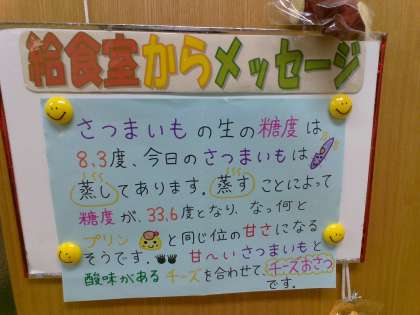 給食室からメッセージ
さつまいもの生の糖度は
8.3度、今日のさつまいもは
蒸してあります。蒸すことによって
糖度が、33.6度となり、なっ何と
プリンと同じ位の甘さになる
そうです。甘〜いさつまいもと
酸味があるチーズを合わせて、チーズおさつ
です。